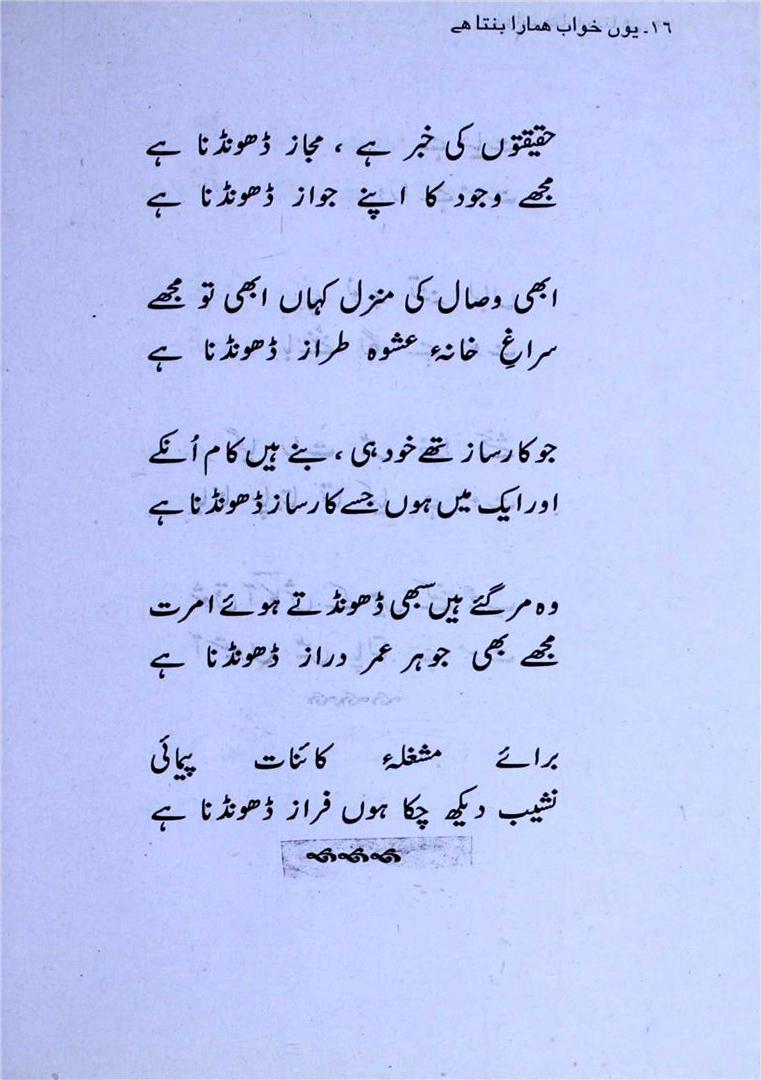 ١٦۔ یوں خواب ہمارا بنتا ہے
حقیقتوں کی خبر ہے ، مجاز ڈھونڈنا ہے
مجھے وجود کا اپنے جواز ڈھونڈنا ہے
ابھی وصال کی منزل کہاں ابھی تو مجھے
سراغِ خانۂ عشوہ طراز ڈھونڈنا ہے
جو کارساز تھے خود ہی ، بنے ہیں کام اُنکے
اور ایک میں ہوں جسے کارساز ڈھونڈنا ہے
وہ مر گئے ہیں سبھی ڈھونڈتے ہوئے امرت
مجھے بھی جوہر عمر دراز ڈھونڈنا ہے
برائے مشغلۂ کائنات پیمائی
نشیب دیکھ چکا ہوں فراز ڈھونڈنا ہے